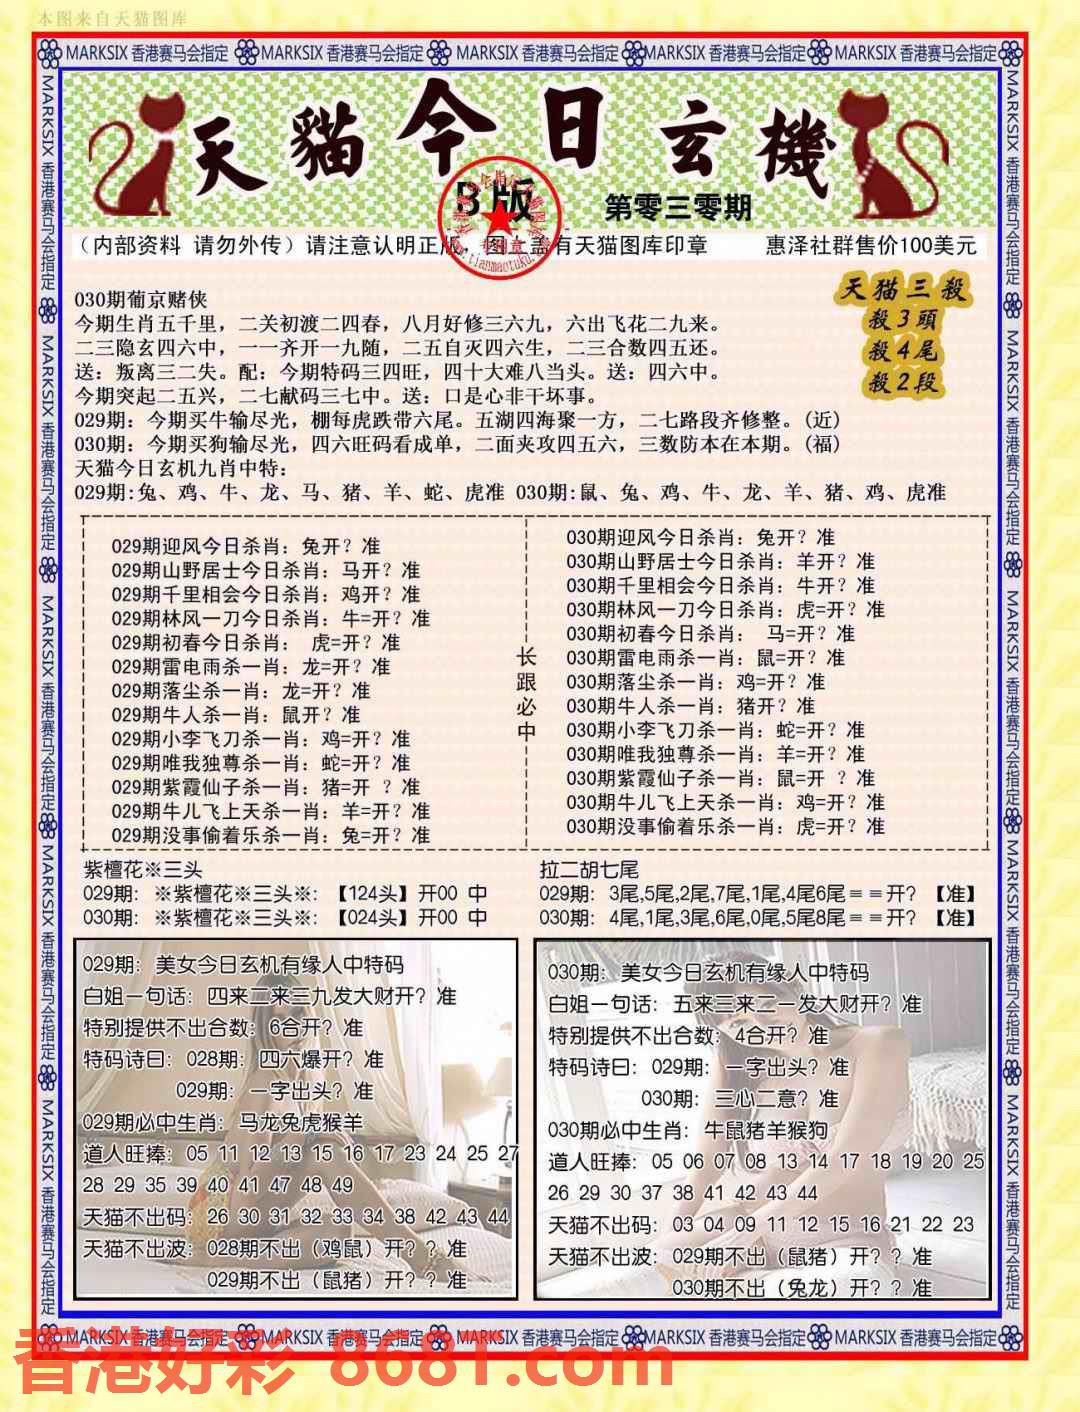 本图来自天猫图库
MARKSIX 香港赛马会指定 MARKSIX 香港赛马会指定 MARKSIX 香港赛马会指定 MARKSIX 香港赛马会指定 MARKSIX 香港赛马会指定
天貓今日玄機
B版
第零三零期
（内部资料 请勿外传）请注意认明正版，图上盖有天猫图库印章 惠泽社群售价100美元
天猫三殺
殺3頭
殺4尾
殺2段
030期葡京赌侠
今期生肖五千里，二关初渡二四春，八月好修三六九，六出飞花二九来。
二三隐玄四六中，一一齐开一九随，二五自灭四六生，二三合数四五还。
送：叛离三二失。配：今期特码三四旺，四十大难八当头。送：四六中。
今期突起二五兴，二七献码三七中。送：口是心非干坏事。
029期：今期买牛输尽光，棚每虎跌带六尾。五湖四海聚一方，二七路段齐修整。(近)
030期：今期买狗输尽光，四六旺码看成单，二面夹攻四五六，三数防本在本期。(福)
天猫今日玄机九肖中特：
029期:兔、鸡、牛、龙、马、猪、羊、蛇、虎准 030期:鼠、兔、鸡、牛、龙、羊、猪、鸡、虎准
029期迎风今日杀肖：兔开？准
029期山野居士今日杀肖：马开？准
029期千里相会今日杀肖：鸡开？准
029期林风一刀今日杀肖：牛=开？准
029期初春今日杀肖： 虎=开？准
029期雷电雨杀一肖：龙=开？准
029期落尘杀一肖：龙=开？准
029期牛人杀一肖：鼠开？准
029期小李飞刀杀一肖：鸡=开？准
029期唯我独尊杀一肖：蛇=开？准
029期紫霞仙子杀一肖：猪=开 ？准
029期牛儿飞上天杀一肖：羊=开？准
029期没事偷着乐杀一肖：兔=开？准
长跟必中
030期迎风今日杀肖：兔开？准
030期山野居士今日杀肖：羊开？准
030期千里相会今日杀肖：牛开？准
030期林风一刀今日杀肖：虎=开？准
030期初春今日杀肖： 马=开？准
030期雷电雨杀一肖：鼠=开？准
030期落尘杀一肖：鸡=开？准
030期牛人杀一肖：猪开？准
030期小李飞刀杀一肖：蛇=开？准
030期唯我独尊杀一肖：羊=开？准
030期紫霞仙子杀一肖：鼠=开 ？准
030期牛儿飞上天杀一肖：鸡=开？准
030期没事偷着乐杀一肖：虎=开？准
紫檀花※三头
029期：※紫檀花※三头※：【124头】开00 中
030期：※紫檀花※三头※：【024头】开00 中
拉二胡七尾
029期：3尾,5尾,2尾,7尾,1尾,4尾6尾＝＝开？【准】
030期：4尾,1尾,3尾,6尾,0尾,5尾8尾＝＝开？【准】
029期：美女今日玄机有缘人中特码
白姐一句话：四来二来三九发大财开？准
特别提供不出合数：6合开？准
特码诗曰：028期：四六爆开？准
029期：一字出头？准
029期必中生肖：马龙兔虎猴羊
道人旺捧：05 11 12 13 15 16 17 23 24 25 27
28 29 35 39 40 41 47 48 49
天猫不出码：26 30 31 32 33 34 38 42 43 44
天猫不出波：028期不出（鸡鼠）开？？准
029期不出（鼠猪）开？？准
030期：美女今日玄机有缘人中特码
白姐一句话：五来三来二一发大财开？准
特别提供不出合数：4合开？准
特码诗曰：029期：一字出头？准
030期：三心二意？准
030期必中生肖：牛鼠猪羊猴狗
道人旺捧：05 06 07 08 13 14 17 18 19 20 25
26 29 30 37 38 41 42 43 44
天猫不出码：03 04 09 11 12 15 16 21 22 23
天猫不出波：029期不出（鼠猪）开？？准
030期不出（兔龙）开？？准
MARKSIX 香港赛马会指定 MARKSIX 香港赛马会指定 MARKSIX 香港赛马会指定 MARKSIX 香港赛马会指定 MARKSIX 香港赛马会指定
香港好彩 8681.com